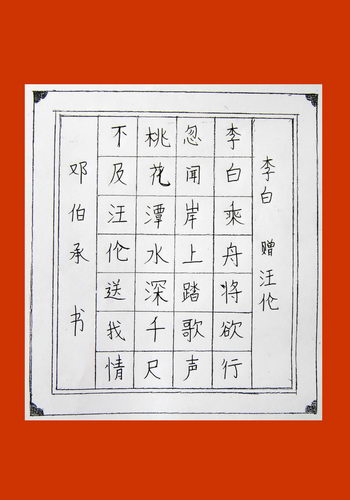 李白 赠汪伦
李白乘舟将欲行
忽闻岸上踏歌声
桃花潭水深千尺
不及汪伦送我情
邓伯承 书